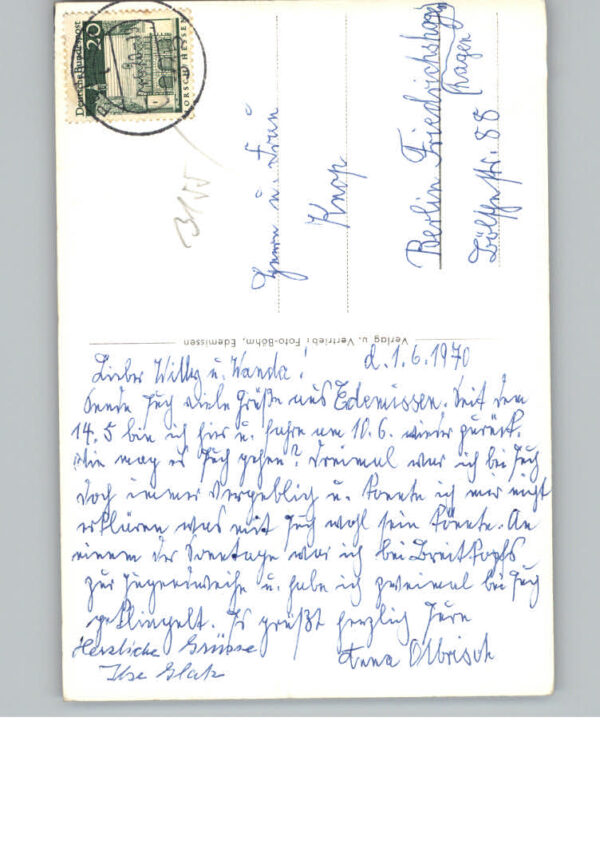 Deutsche Bundespost
20
LORSCH HESSEN
3155
Herrn u. Frau
Knop
Berlin Friedrichshagen
hagen
Bölschestr. 88
Verlag u. Vertrieb: Foto-Böhm, Edemissen
Lieber Willy u. Wanda! d. 1.6.1970
Sende Euch viele Grüße aus Edemissen. Seit dem
14.5 bin ich hier u. fahre am 10.6. wieder zurück.
Wie mag es Euch gehen? Dreimal war ich bei Euch
doch immer vergeblich u. konnte ich mir nicht
erklären was mit Euch wohl sein könnte. An
einem der Sonntage war ich bei Breitkopfs
zur Jugendweihe u. habe ich zweimal bei Euch
geklingelt. Es grüßt herzlich Eure
Herzliche Grüsse Anna Olbrisch
Ilse Glatz